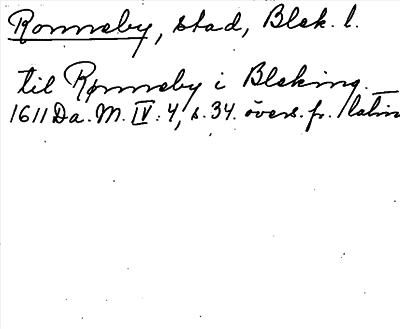 Ronneby, stad, Blek. l.
til Rønneby i Bleking.
1611 Da. M. IV: 4, s. 34. övers. fr. latin